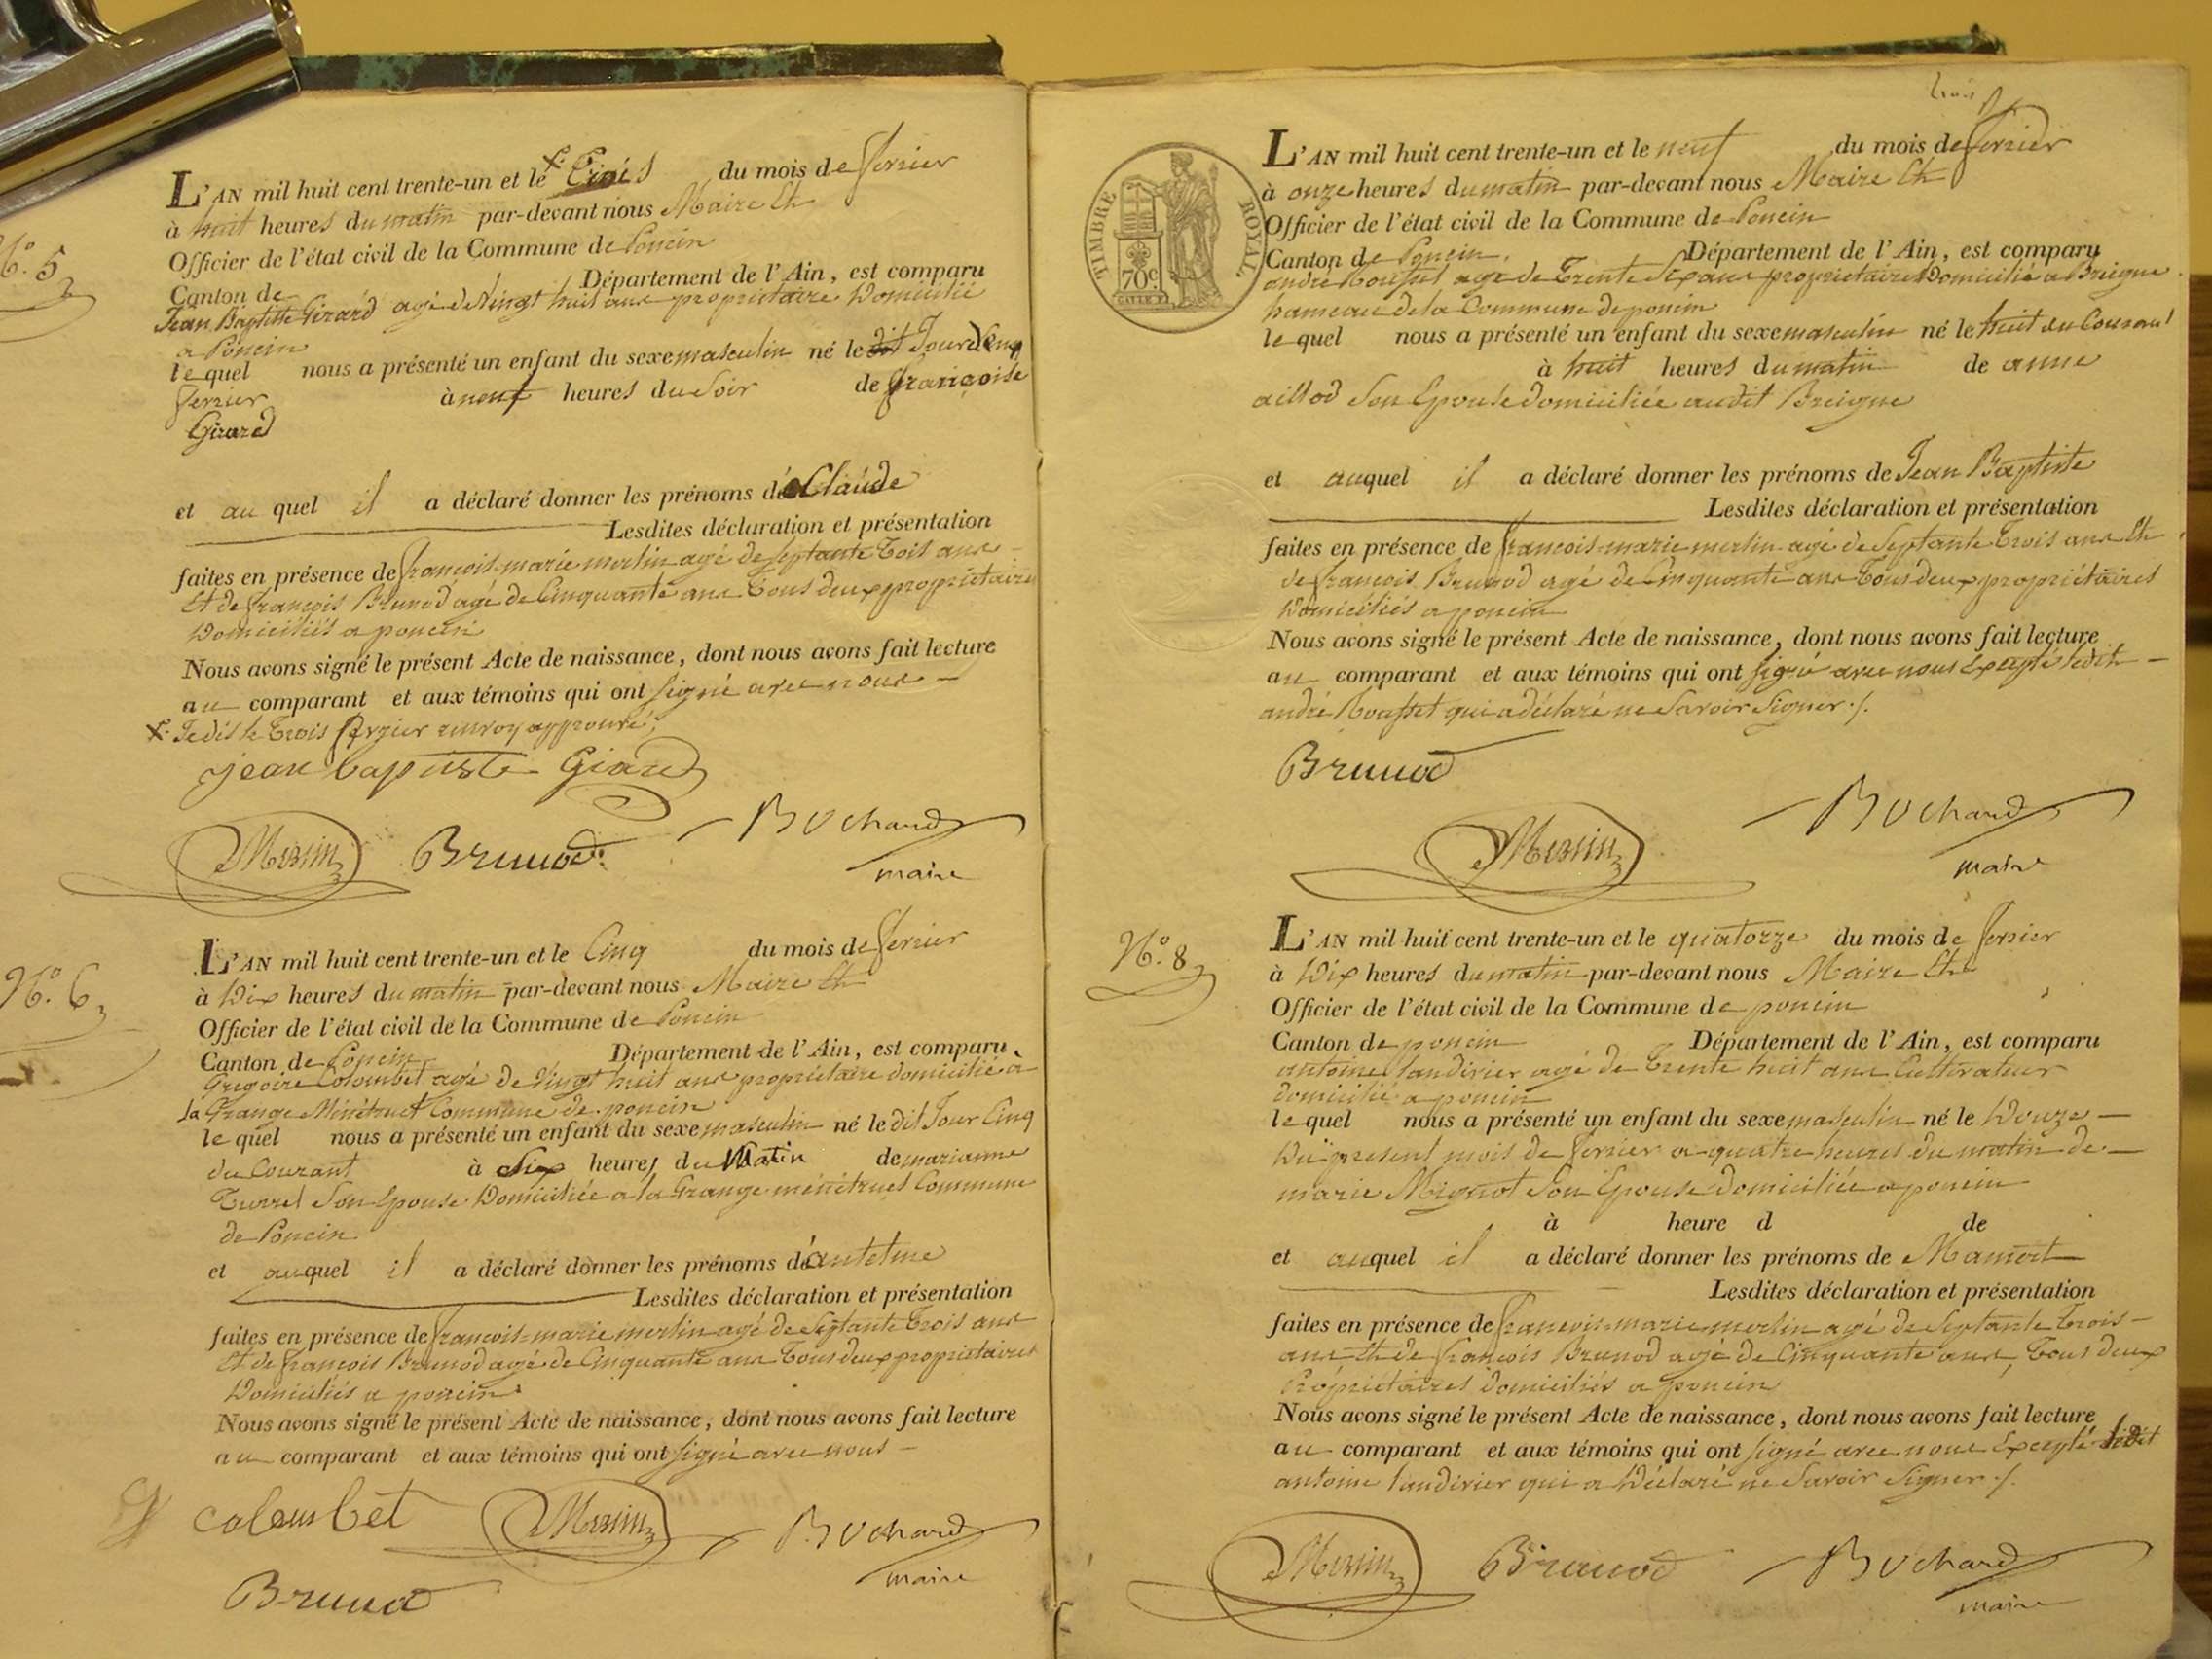 N.° 5
L'AN mil huit cent trente-un et le Trois du mois de fevrier
à huit heures du matin par-devant nous Maire Et
Officier de l'état civil de la Commune de Poncin
Canton de Département de l'Ain, est comparu
Jean Baptiste Girard agé de Vingt huit ans proprietaire Domicilié
a Poncin
le quel nous a présenté un enfant du sexe masculin né le Jour
fevrier à neuf heures du Soir de françoise
Girard
et au quel il a déclaré donner les prénoms de Claude
Lesdites déclaration et présentation
faites en présence de françois-marie merlin agé de Septante Tois ans
Et de françois Brunod agé de Cinquante ans Tous deux proprietaires
Domiciliés a poncin
Nous avons signé le présent Acte de naissance, dont nous avons fait lecture
au comparant et aux témoins qui ont signé avec nous
Je dis le Trois fevrier renvoy approuvé
jean baptiste Girard
Merlin Brunod Bochard
maire
N.° 6
L'AN mil huit cent trente-un et le Cinq du mois de fevrier
à Dix heures du matin par-devant nous Maire Et
Officier de l'état civil de la Commune de Poncin
Canton de Poncin Département de l'Ain, est comparu
Grégoire Colombet agé de Vingt huit ans proprietaire domicilié a
la Grange Ménétruel Commune de poncin
le quel nous a présenté un enfant du sexe masculin né le dit Jour Cinq
du Courant à Six heures du Matin de marianne
Turrel Son Epouse Domiciliée a la Grange ménétruel Commune
de Poncin
et auquel il a déclaré donner les prénoms de antelme
Lesdites déclaration et présentation
faites en présence de françois-marie merlin agé de Septante Trois ans
Et de françois Brunod agé de Cinquante ans Tous deux proprietaires
Domiciliés a poncin
Nous avons signé le présent Acte de naissance, dont nous avons fait lecture
au comparant et aux témoins qui ont signé avec nous
colombet Merlin Bochard
maire
Brunod
trois
TIMBRE ROYAL
70c.
L'AN mil huit cent trente-un et le neuf du mois de fevrier
à onze heures du matin par-devant nous Maire Et
Officier de l'état civil de la Commune de Poncin
Canton de Poncin Département de l'Ain, est comparu
andré agé de Trente Six ans proprietaire Domicilié a Breigne
hameau de la Commune de poncin
le quel nous a présenté un enfant du sexe masculin né le huit du Courant
à huit heures du matin de anne
aillod Son Epouse domiciliée audit Breigne
et auquel il a déclaré donner les prénoms de Jean Baptiste
Lesdites déclaration et présentation
faites en présence de françois-marie merlin agé de Septante Trois ans Et
de françois Brunod agé de Cinquante ans Tous deux propriétaires
Domiciliés a poncin
Nous avons signé le présent Acte de naissance, dont nous avons fait lecture
au comparant et aux témoins qui ont signé avec nous Excepté ledit
andré qui a déclaré ne Savoir Signer ./.
Brunod
Merlin Bochard
maire
N.° 8
L'AN mil huit cent trente-un et le quatorze du mois de fevrier
à Dix heures du matin par-devant nous Maire Et
Officier de l'état civil de la Commune de poncin
Canton de poncin Département de l'Ain, est comparu
antoine tandirier agé de Trente huit ans Cultivateur
domicilié a poncin
le quel nous a présenté un enfant du sexe masculin né le Douze
Du present mois de fevrier a quatre heures du matin de
marie Mignot Son Epouse domiciliée a poncin
à heure d de
et auquel il a déclaré donner les prénoms de Mamert
Lesdites déclaration et présentation
faites en présence de françois-marie merlin agé de Septante Trois
ans Et de françois Brunod agé de Cinquante ans, Tous deux
Propriétaires domiciliés a poncin
Nous avons signé le présent Acte de naissance, dont nous avons fait lecture
au comparant et aux témoins qui ont signé avec nous Excepté ledit
antoine tandirier qui a Déclaré ne Savoir Signer ./.
Merlin Brunod Bochard
maire